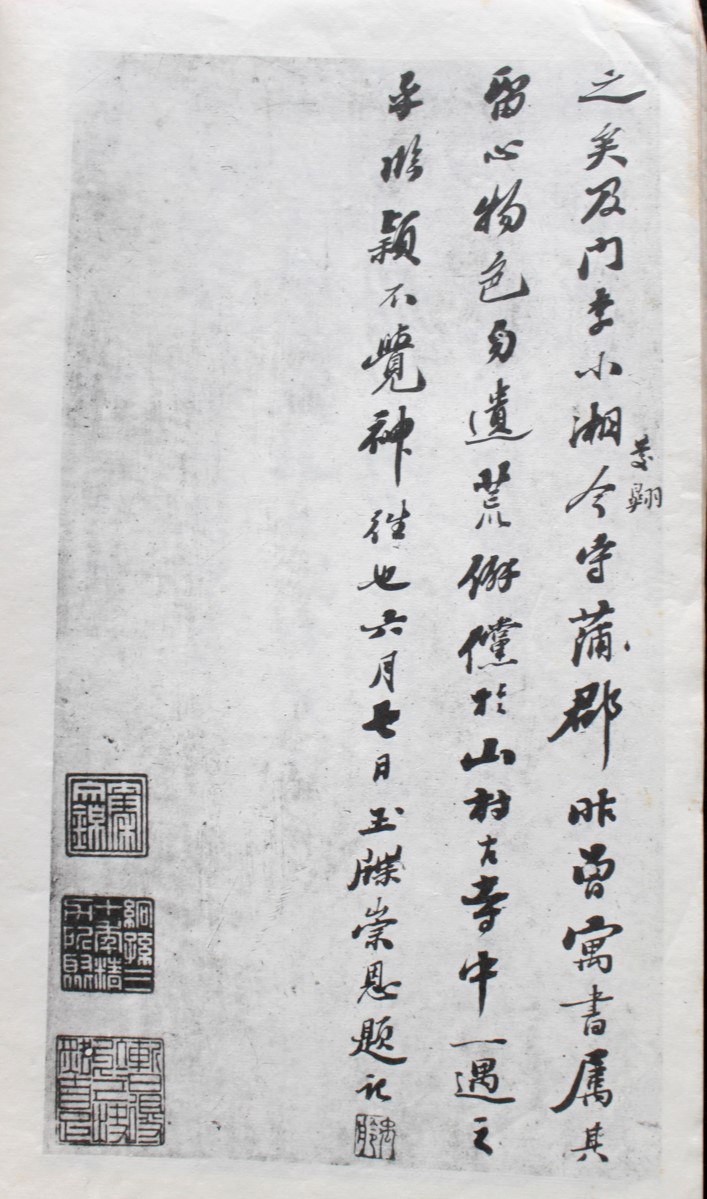 之矣及門李小湘今守蒲郡昨曾寓書屬其
慶翱
留心物色勿遺荒僻儻於山村古寺中一遇之
乎臨穎不覺神往也六月廿日玉牒崇恩題記